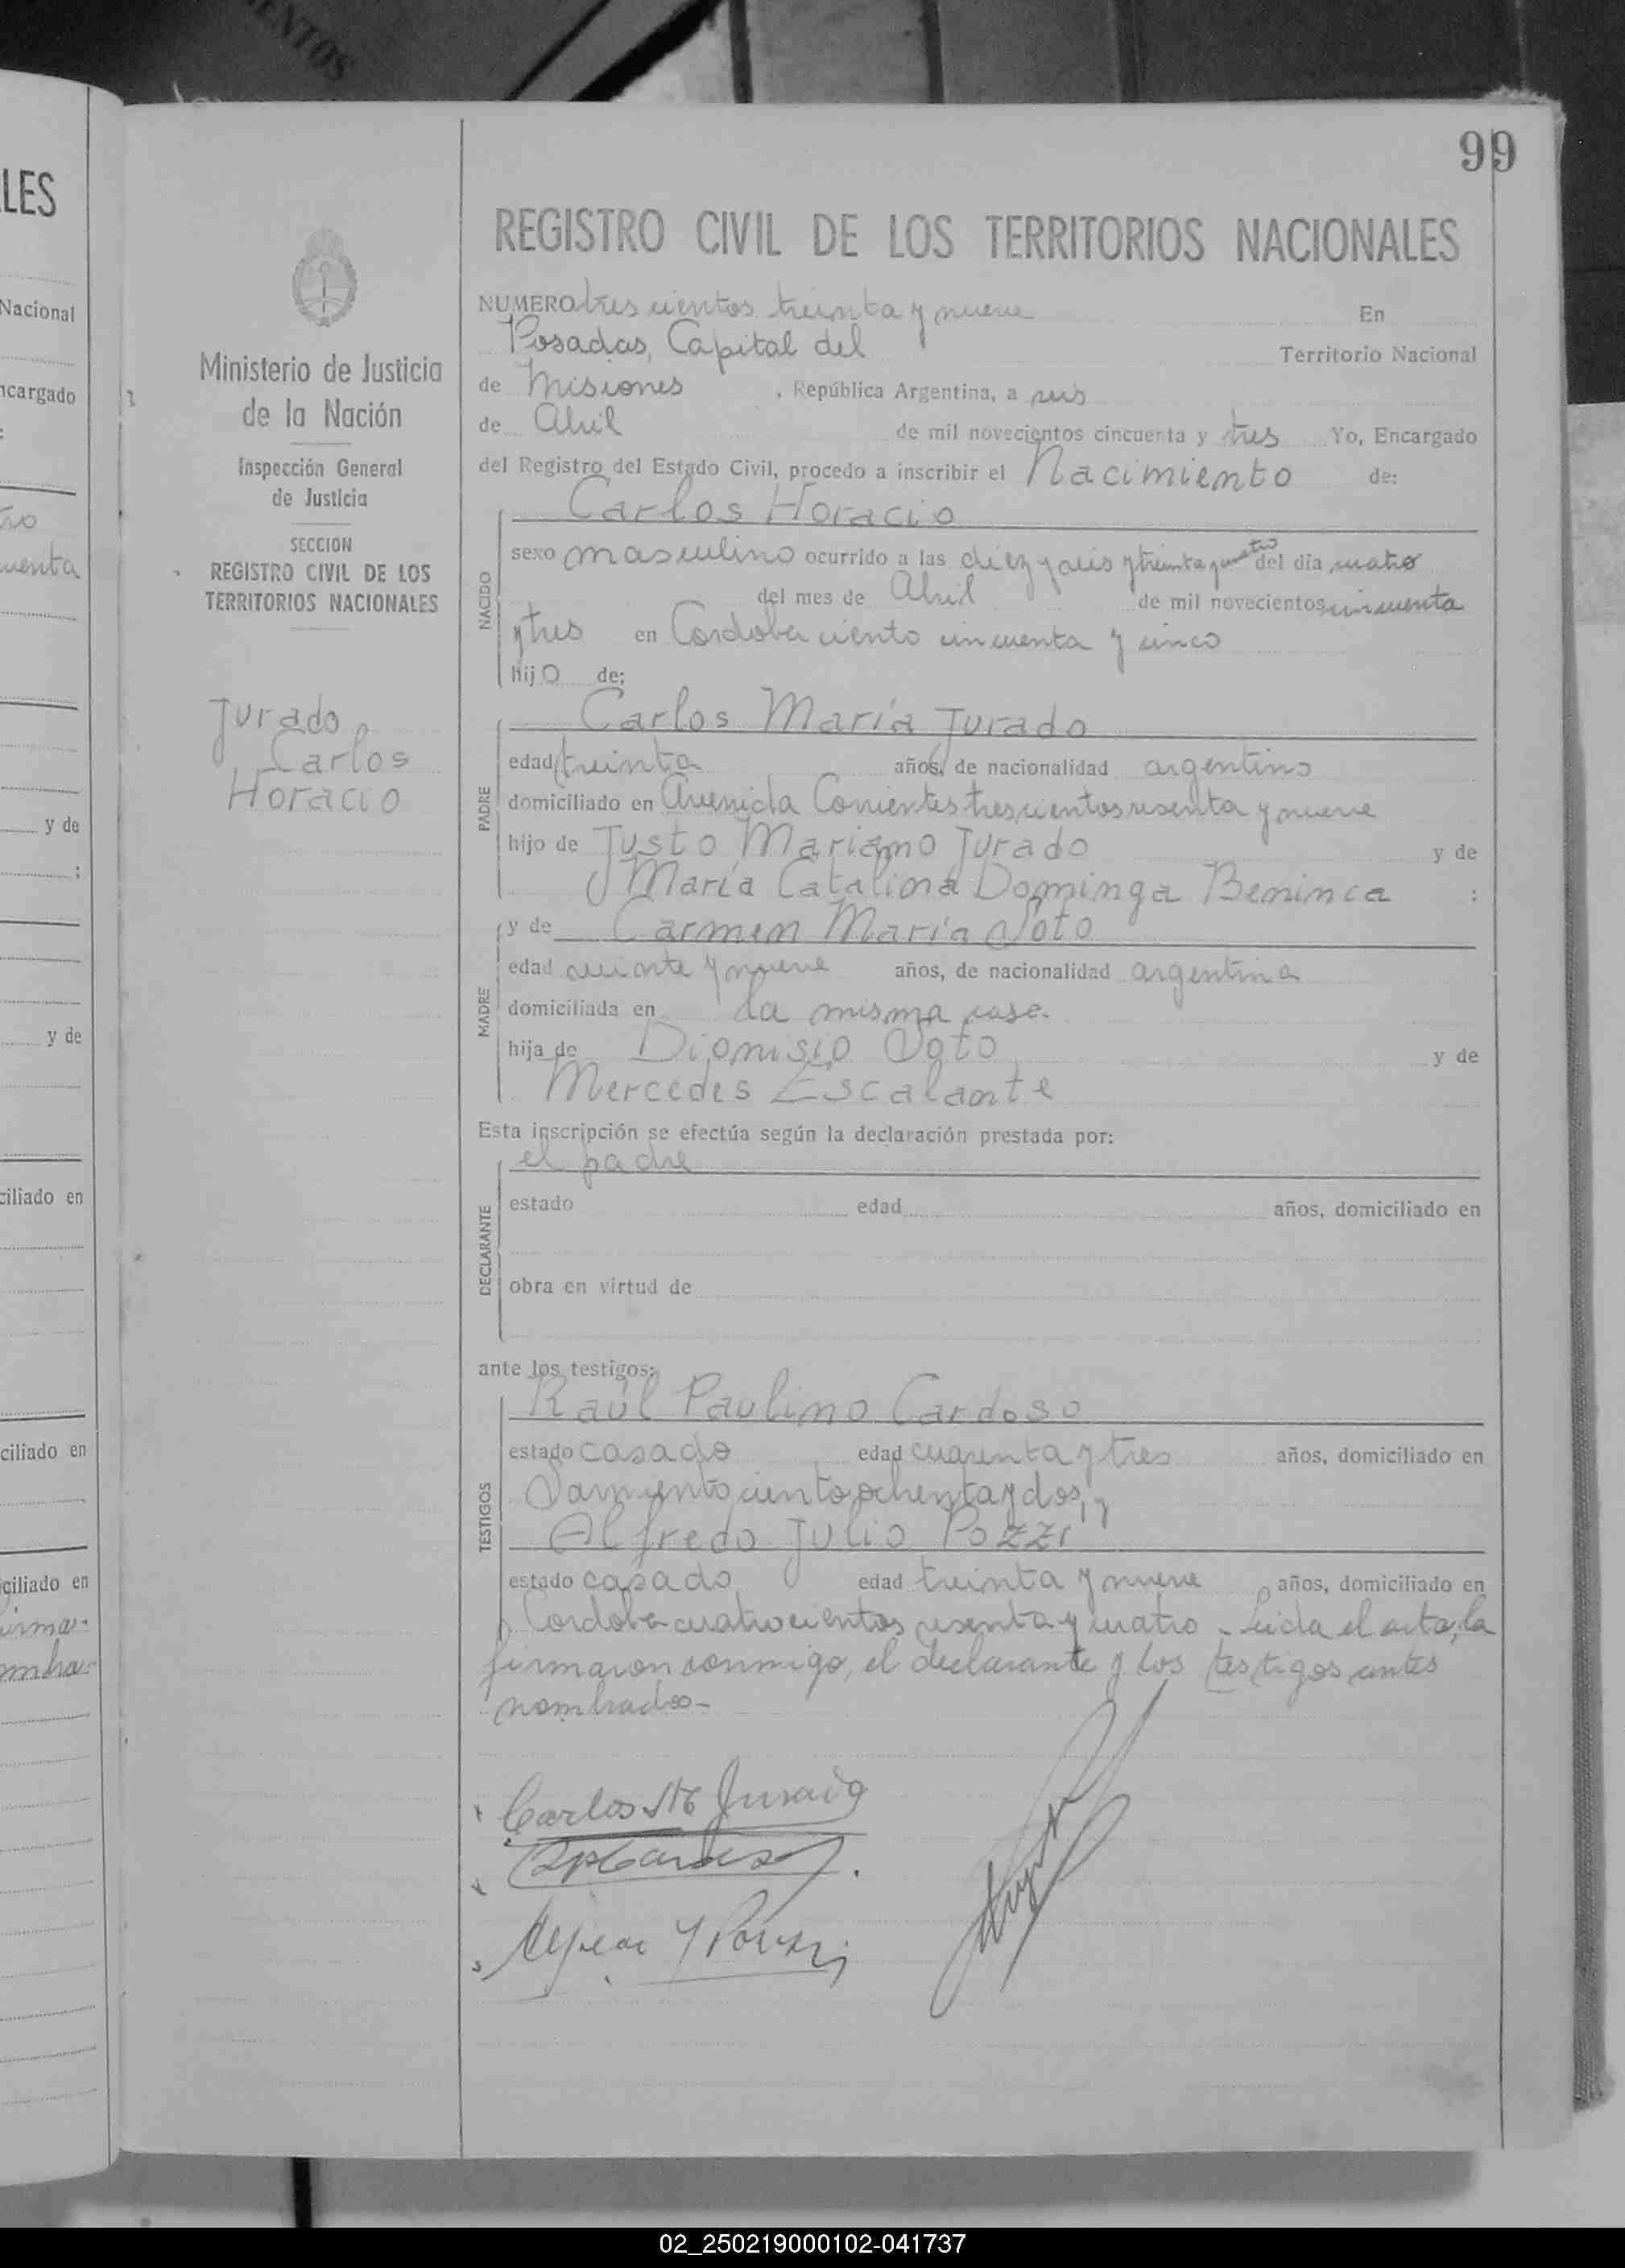 ENTOS
LES
Nacional
ncargado
uenta
y de
;
y de
ciliado en
ciliado en
ciliado en
99
Ministerio de Justicia
de la Nación
Inspección General
de Justicia
SECCION
REGISTRO CIVIL DE LOS
TERRITORIOS NACIONALES
Jurado
Carlos
Horacio
REGISTRO CIVIL DE LOS TERRITORIOS NACIONALES
NUMERO trescientos treinta y nueve En
Posadas, Capital del Territorio Nacional
de Misiones , República Argentina, a seis
de Abril de mil novecientos cincuenta y tres Yo, Encargado
del Registro del Estado Civil, procedo a inscribir el Nacimiento de:
Carlos Horacio
NACIDO
sexo masculino ocurrido a las diez y seis y treinta y cuatro del día cuatro
del mes de Abril de mil novecientos cincuenta
y tres en Cordoba ciento cincuenta y cinco
hijo de;
Carlos María Jurado
PADRE
edad treinta años, de nacionalidad argentino
domiciliado en Avenida Corrientes trescientos sesenta y nueve
hijo de Justo Mariano Jurado y de
María Catalina Dominga Beninca :
y de Carmen María Soto
MADRE
edad veinte y nueve años, de nacionalidad argentina
domiciliada en la misma casa.
hija de Dionisio Soto y de
Mercedes Escalante
Esta inscripción se efectúa según la declaración prestada por:
el padre
DECLARANTE
estado edad años, domiciliado en
obra en virtud de
ante los testigos:
Raúl Paulino Cardoso
TESTIGOS
estado casado edad cuarenta y tres años, domiciliado en
Sarmiento ciento ochenta y dos, y
Alfredo Julio Pozzi
estado casado edad treinta y nueve años, domiciliado en
Cordoba cuatrocientos sesenta y cuatro - Leida el acta, la
firmaron conmigo, el declarante y los testigos antes
nombrados -
Carlos Ma Jurado
02_250219000102-041737